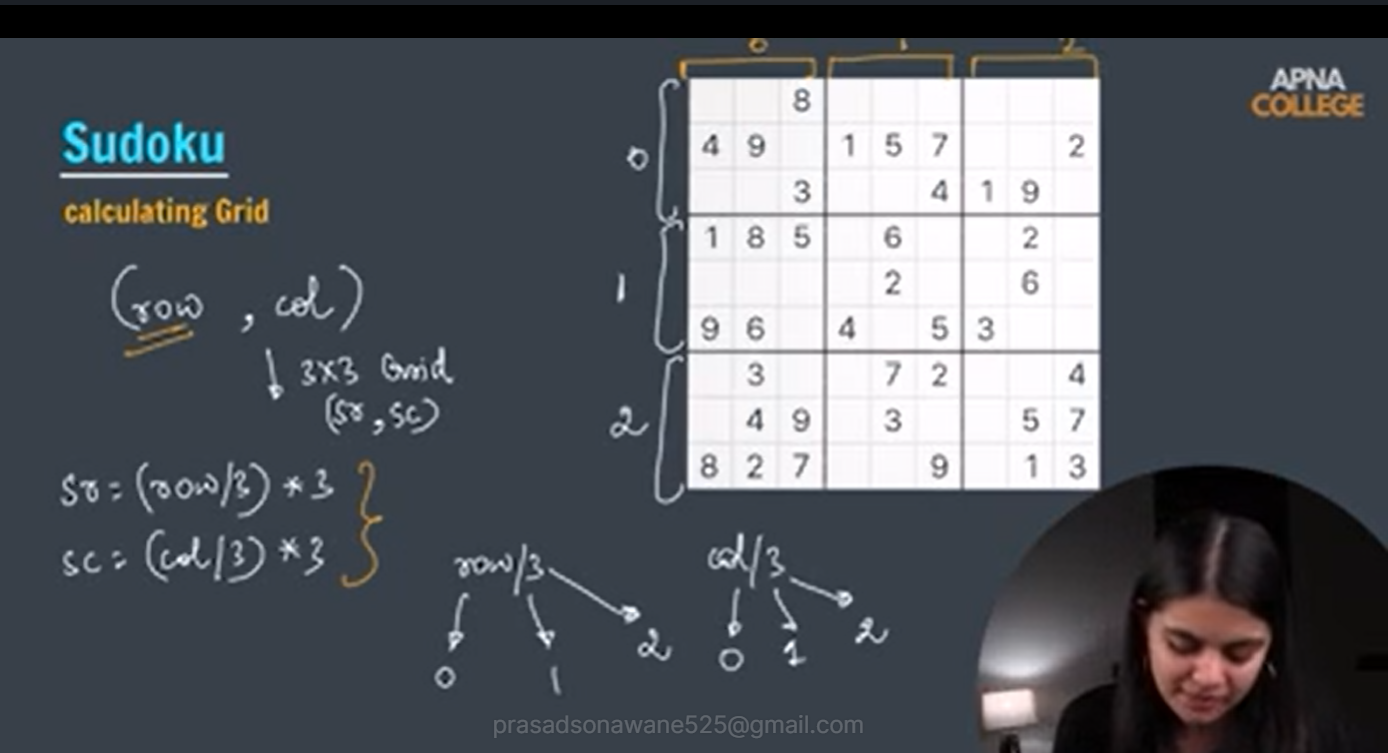 0 1 2
APNA
COLLEGE
Sudoku
calculating Grid
(row , col)
↓ 3x3 Grid
(sr, sc)
sr = (row/3) * 3
sc = (col/3) * 3
0
1
2
8
4 9 1 5 7 2
3 4 1 9
1 8 5 6 2
2 6
9 6 4 5 3
3 7 2 4
4 9 3 5 7
8 2 7 9 1 3
row/3
0 1 2
col/3
0 1 2
prasadsonawane525@gmail.com